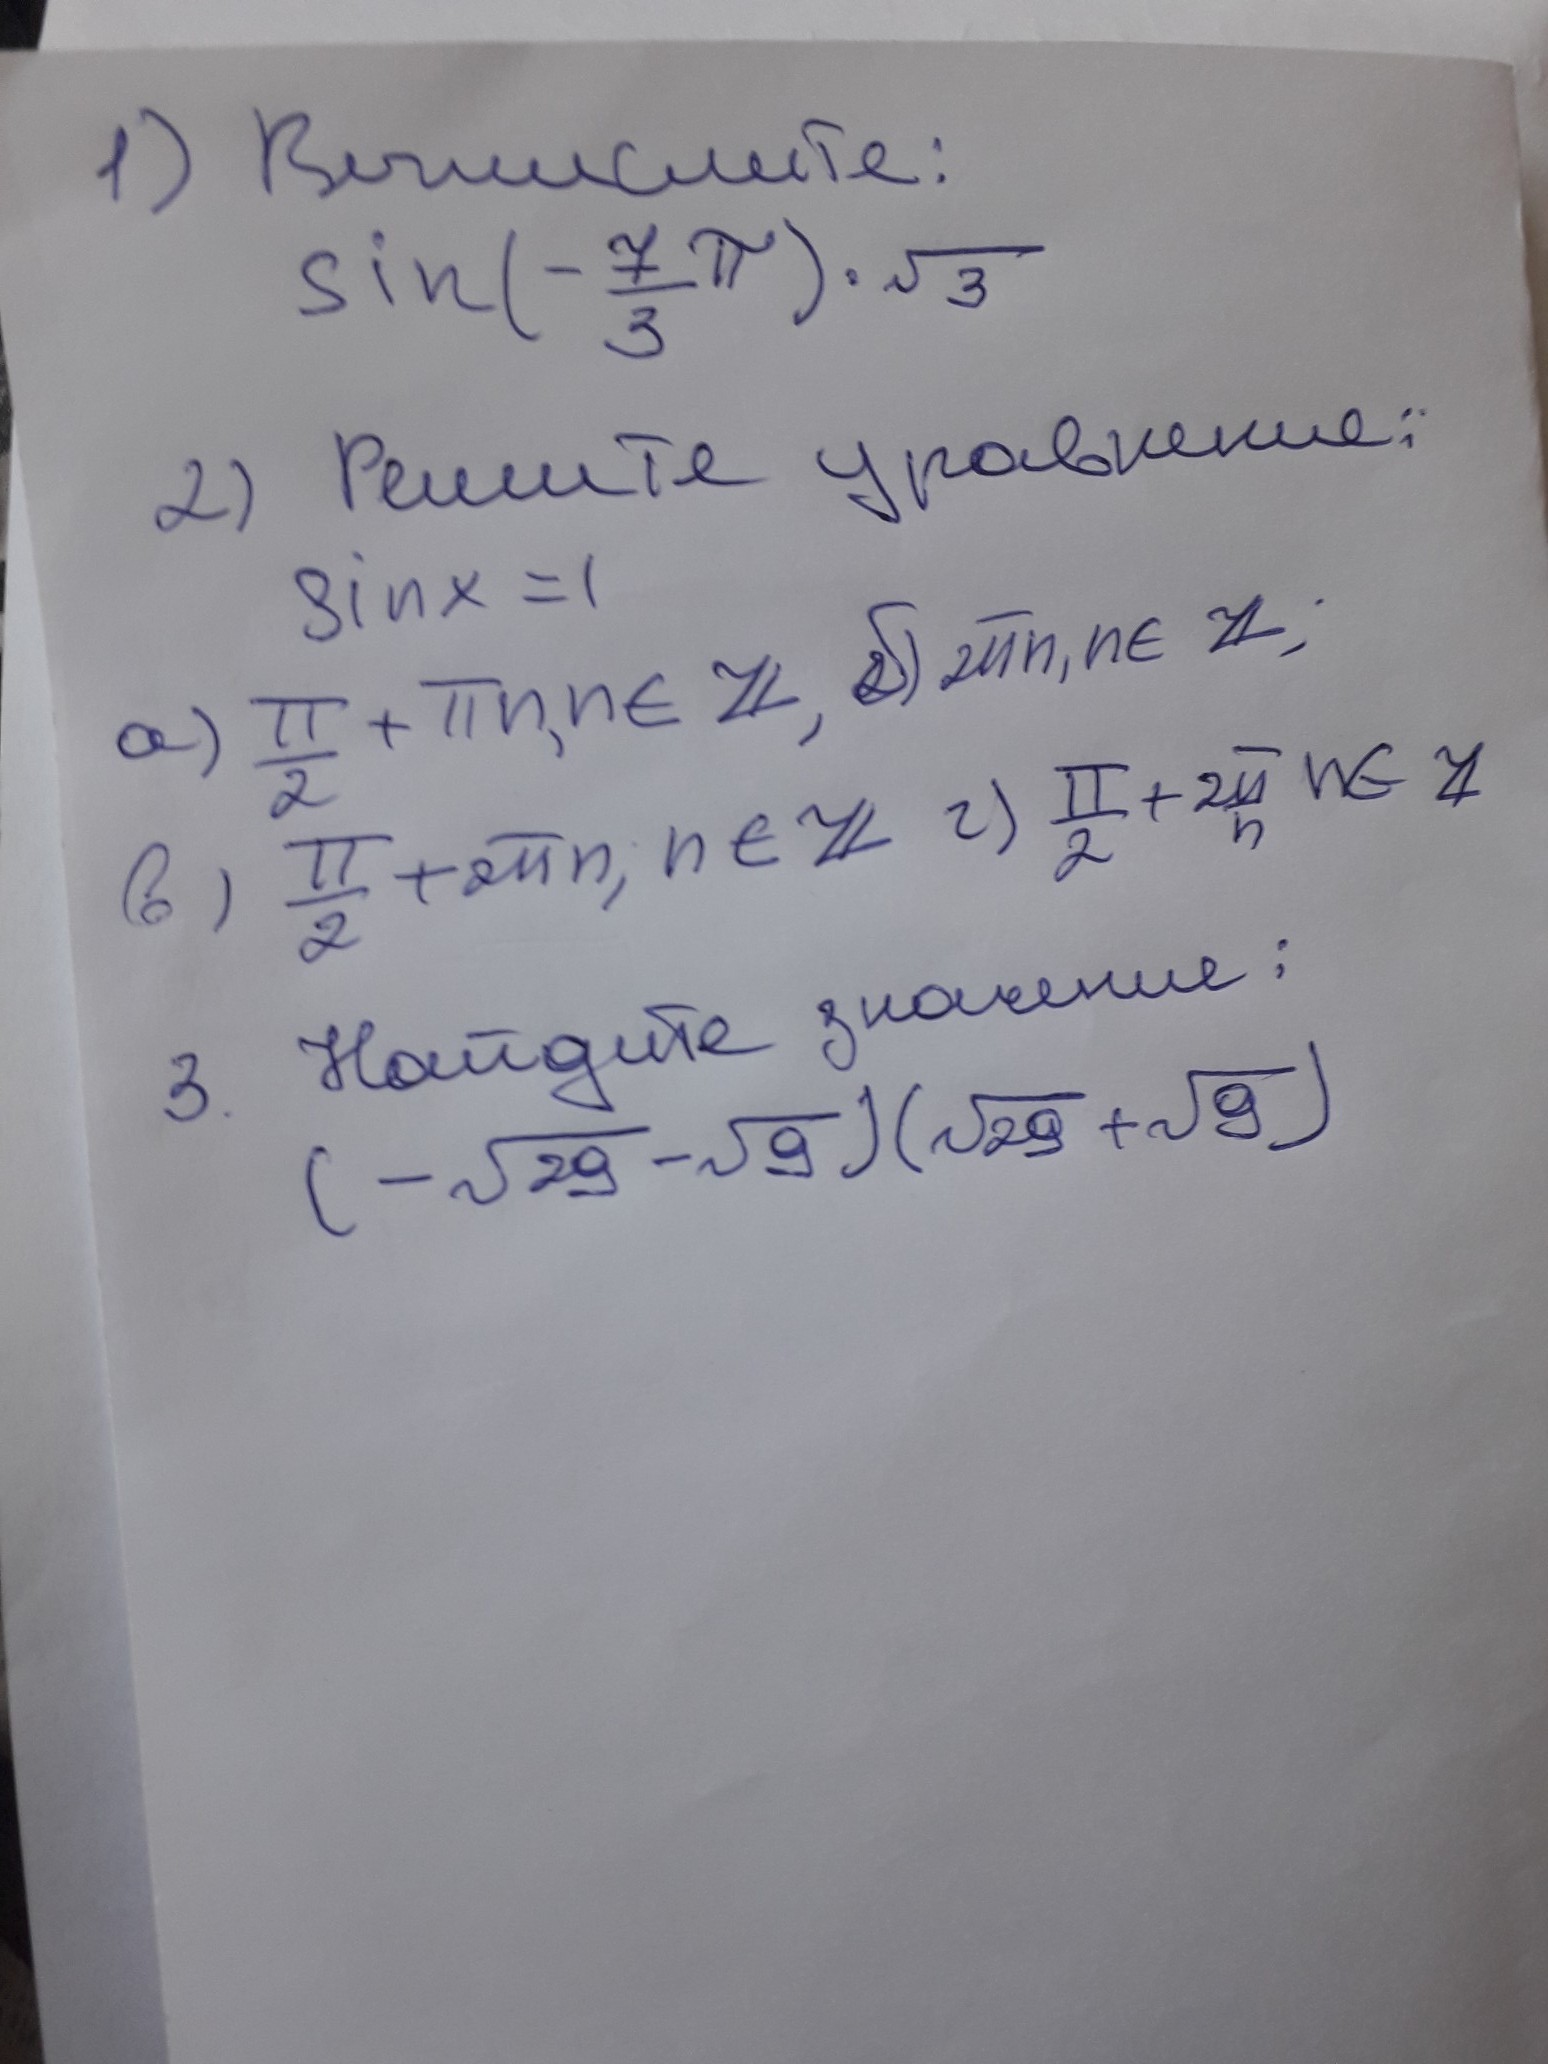 1) Вычислите:
sin(-7/3 π)·√3
2) Решите уравнение:
sinx=1
а) π/2 + πn, n∈ℤ, б) 2πn, n∈ℤ;
в) π/2 + 2πn; n∈ℤ г) π/2 + 2π/n n∈ℤ
3. Найдите значение:
(-√29-√9)(√29+√9)